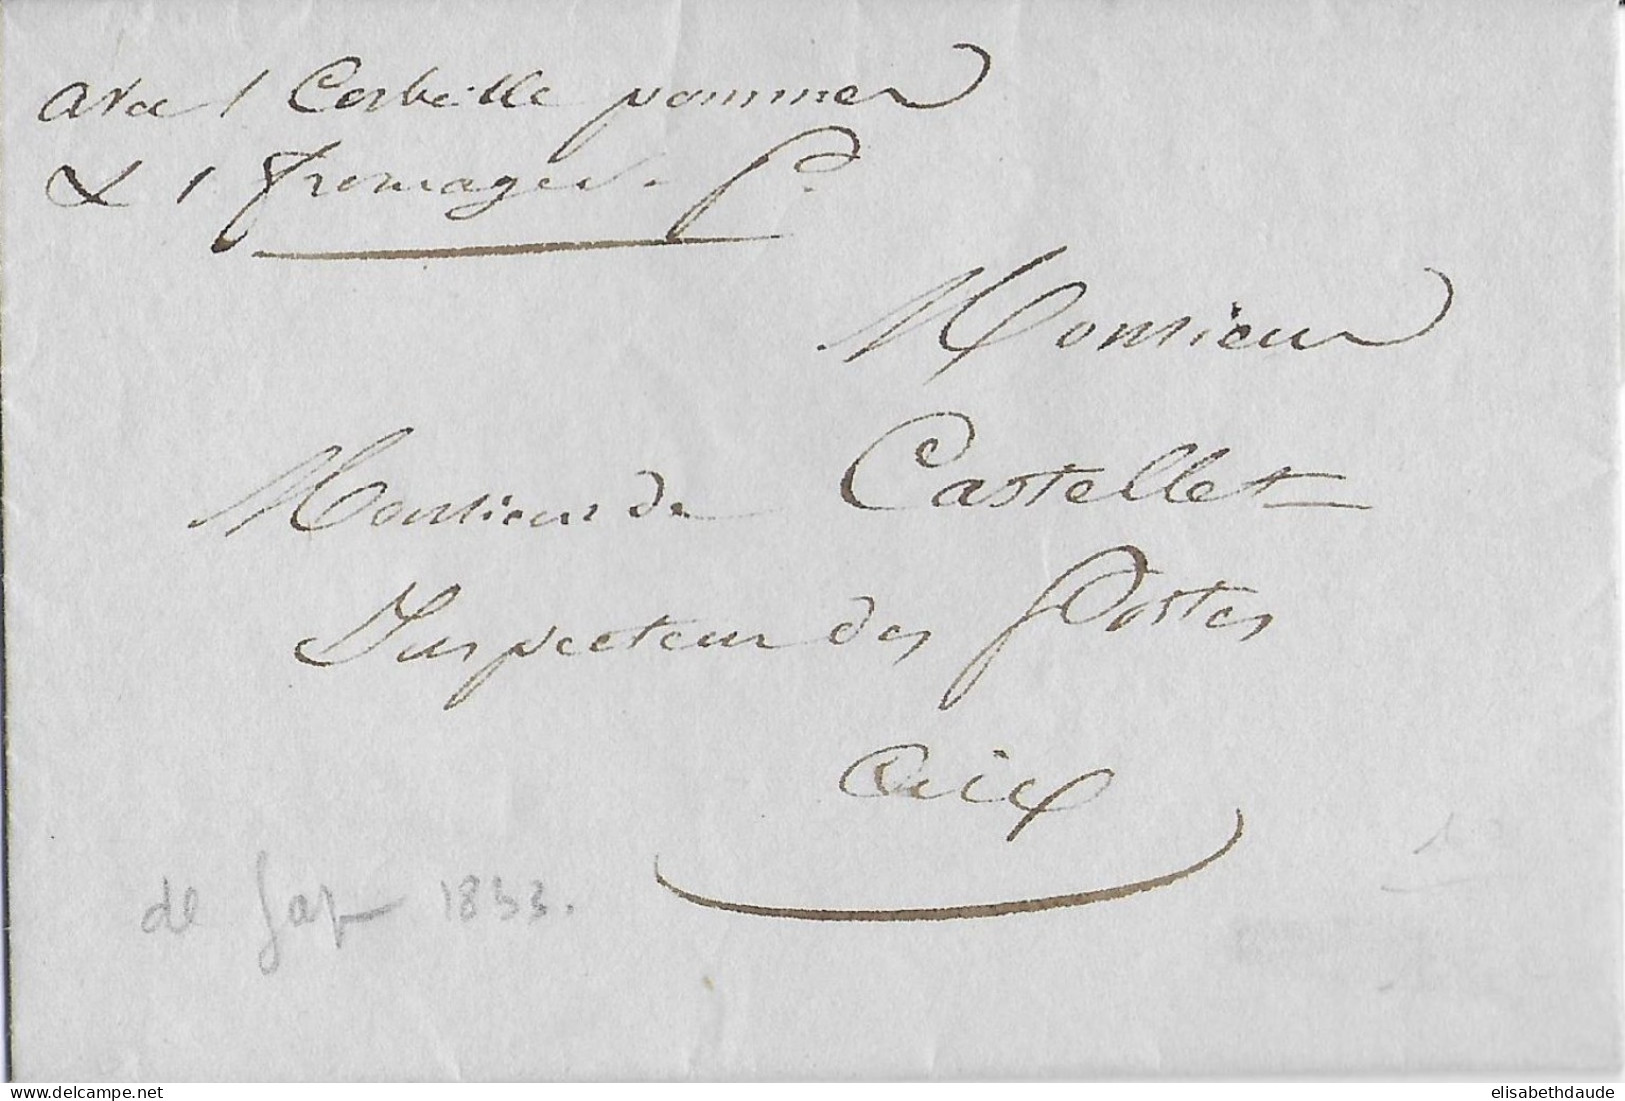 avec 1 Corbeille pommes
& 1 fromages. P.
Monsieur
Monsieur de Castellet
Inspecteur des Postes
Aix
de Gap 1833.
elisabethdaude